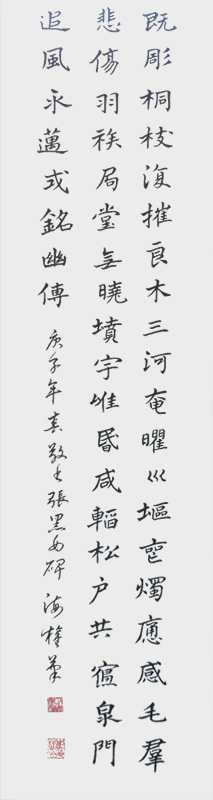 既彫桐枝復摧良木三河奄曜巛塸喪燭應感毛羣
悲傷羽族局堂無曉墳宇唯昏咸轁松户共寢泉門
追風永邁式銘幽傳
庚子年 敬書張黑女碑 海 筆